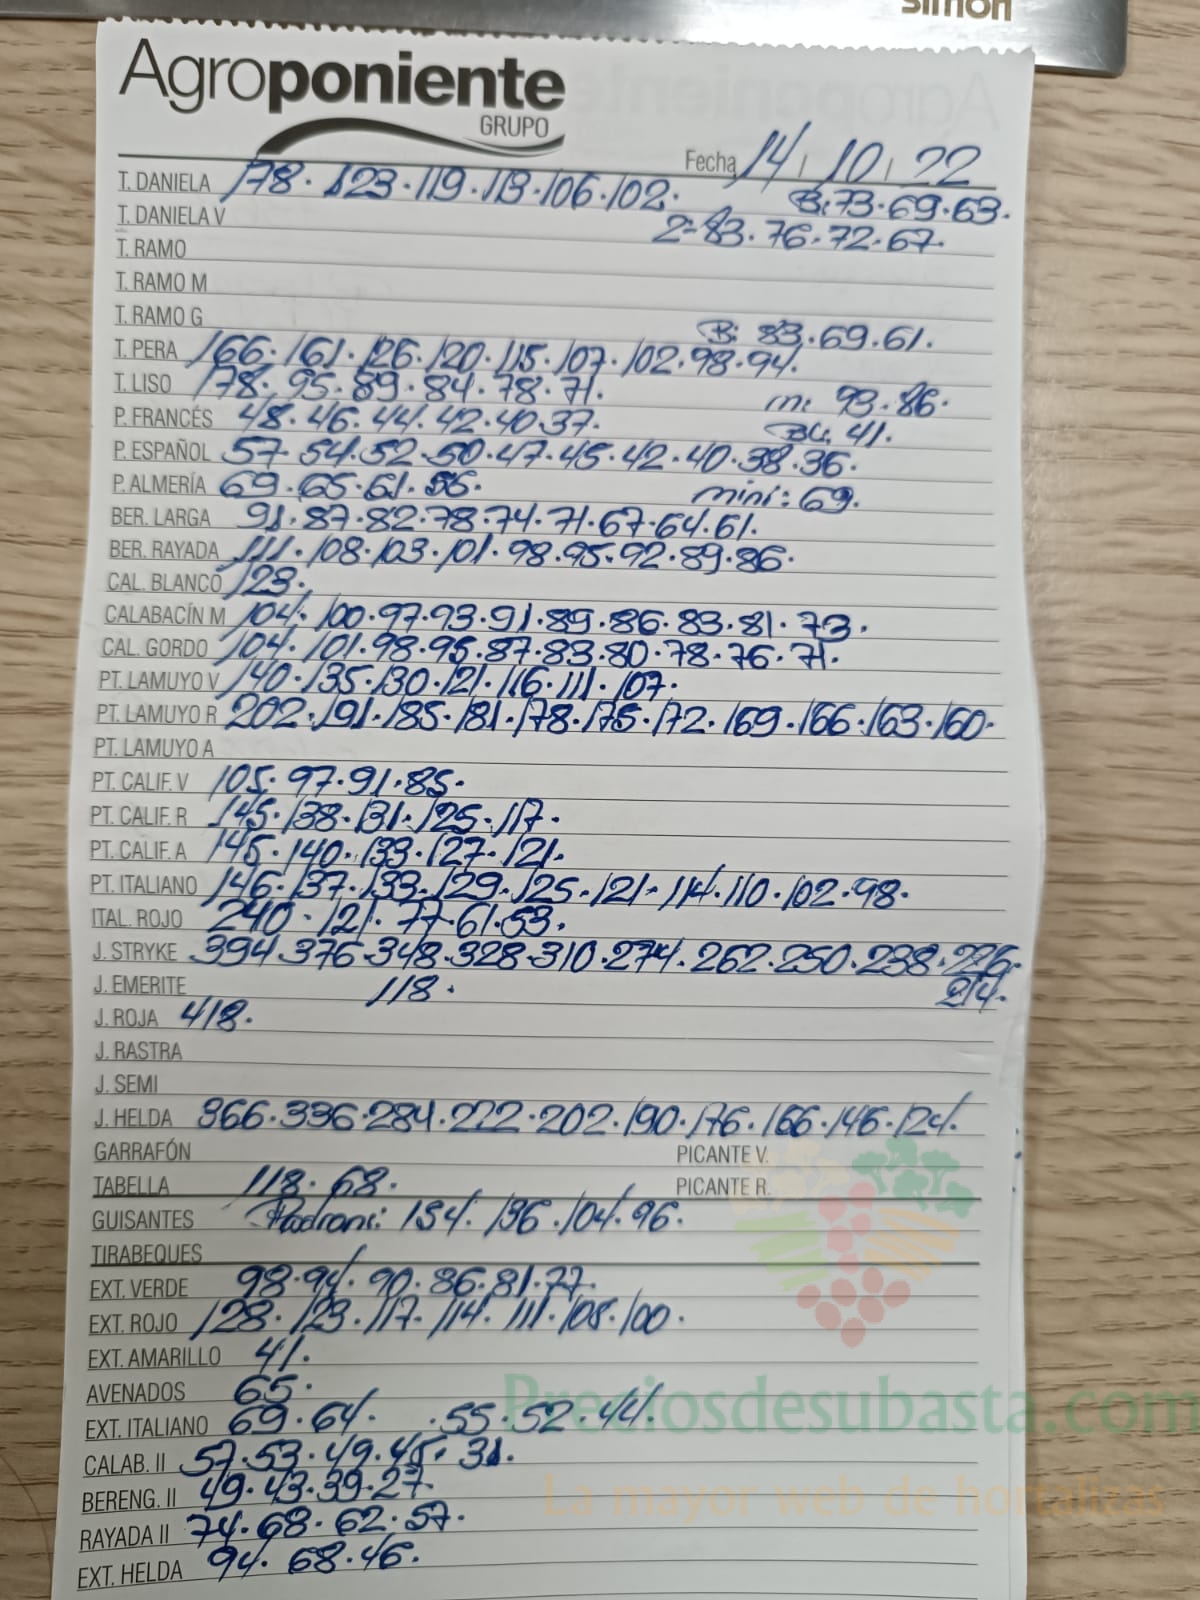 simon
Agroponiente
GRUPO
Fecha 14/10/22
T. DANIELA 178. 123. 119. 113. 106. 102. B: 73. 69. 63.
T. DANIELA V 2ª 83. 76. 72. 67.
T. RAMO
T. RAMO M
T. RAMO G B: 83. 69. 61.
T. PERA 166. 161. 126. 120. 115. 107. 102. 98. 94.
T. LISO 178. 95. 89. 84. 78. 71. m: 93. 86.
P. FRANCÉS 48. 46. 44. 42. 40. 37. 41.
P. ESPAÑOL 57. 54. 52. 50. 47. 45. 42. 40. 38. 36.
P. ALMERÍA 69. 65. 61. 56. mini: 69.
BER. LARGA 91. 87. 82. 78. 74. 71. 67. 64. 61.
BER. RAYADA 111. 108. 103. 101. 98. 95. 92. 89. 86.
CAL. BLANCO 123.
CALABACÍN M 104. 100. 97. 93. 91. 89. 86. 83. 81. 73.
CAL. GORDO 104. 101. 98. 95. 87. 83. 80. 78. 76. 71.
PT. LAMUYO V 140. 135. 130. 121. 116. 111. 107.
PT. LAMUYO R 202. 191. 185. 181. 178. 175. 172. 169. 166. 163. 160.
PT. LAMUYO A
PT. CALIF. V 105. 97. 91. 85.
PT. CALIF. R 145. 138. 131. 125. 117.
PT. CALIF. A 145. 140. 133. 127. 121.
PT. ITALIANO 146. 137. 133. 129. 125. 121. 114. 110. 102. 98.
ITAL. ROJO 240. 121. 77. 61. 53.
J. STRYKE 394. 376. 348. 328. 310. 274. 262. 250. 238. 226.
J. EMERITE 118. 214.
J. ROJA 418.
J. RASTRA
J. SEMI
J. HELDA 366. 336. 284. 222. 202. 190. 176. 166. 146. 124.
GARRAFÓN PICANTE V.
TABELLA 118. 68. PICANTE R.
GUISANTES Padroni: 154. 136. 104. 96.
TIRABEQUES
EXT. VERDE 98. 94. 90. 86. 81. 77.
EXT. ROJO 128. 123. 117. 114. 111. 108. 100.
EXT. AMARILLO 41.
AVENADOS 65.
EXT. ITALIANO 69. 64. .55. 52. 44.
CALAB. II 57. 53. 49. 45. 31.
BERENG. II 49. 43. 39. 27.
RAYADA II 74. 68. 62. 57.
EXT. HELDA 94. 68. 46.
Preciosdesubasta.com
La mayor web de hortalizas